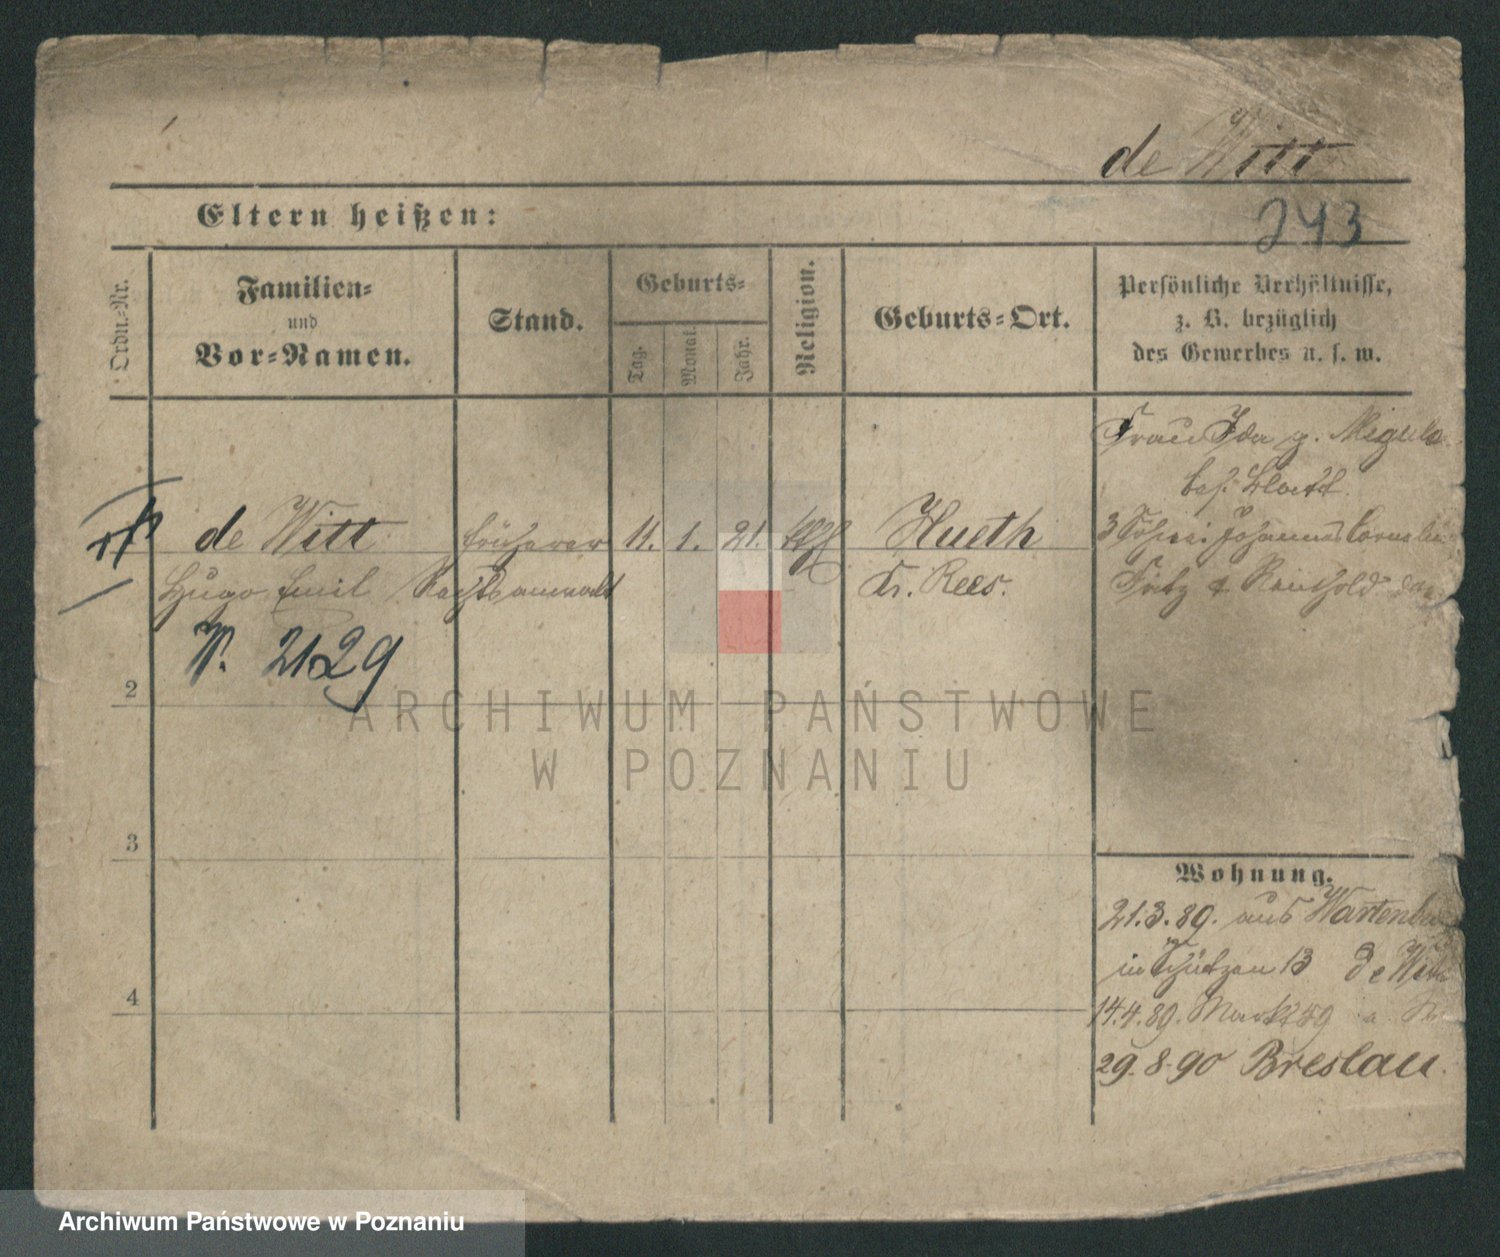 de Witt
243
Eltern heißen:
Ordn.-Nr.
Familien-
und
Vor-Namen.
Stand.
Geburts-
Tag.
Monat.
Jahr.
Religion.
Geburts-Ort.
Persönliche Verhältnisse,
z. B. bezüglich
des Gewerbes u. s. w.
Frau Ida g. Migula
de Witt früherer 11. 1. 21. Hueth 3 Johannes
Hugo Emil Rechtsanwalt Kr. Rees. Fritz & Reinhold
W. 2129
2
3
4
Wohnung.
21.3.89. aus
in Schützen 13 de Witt
14.4.89. Markt 59
29.8.90 Breslau.
ARCHIWUM PAŃSTWOWE
W POZNANIU
Archiwum Państwowe w Poznaniu